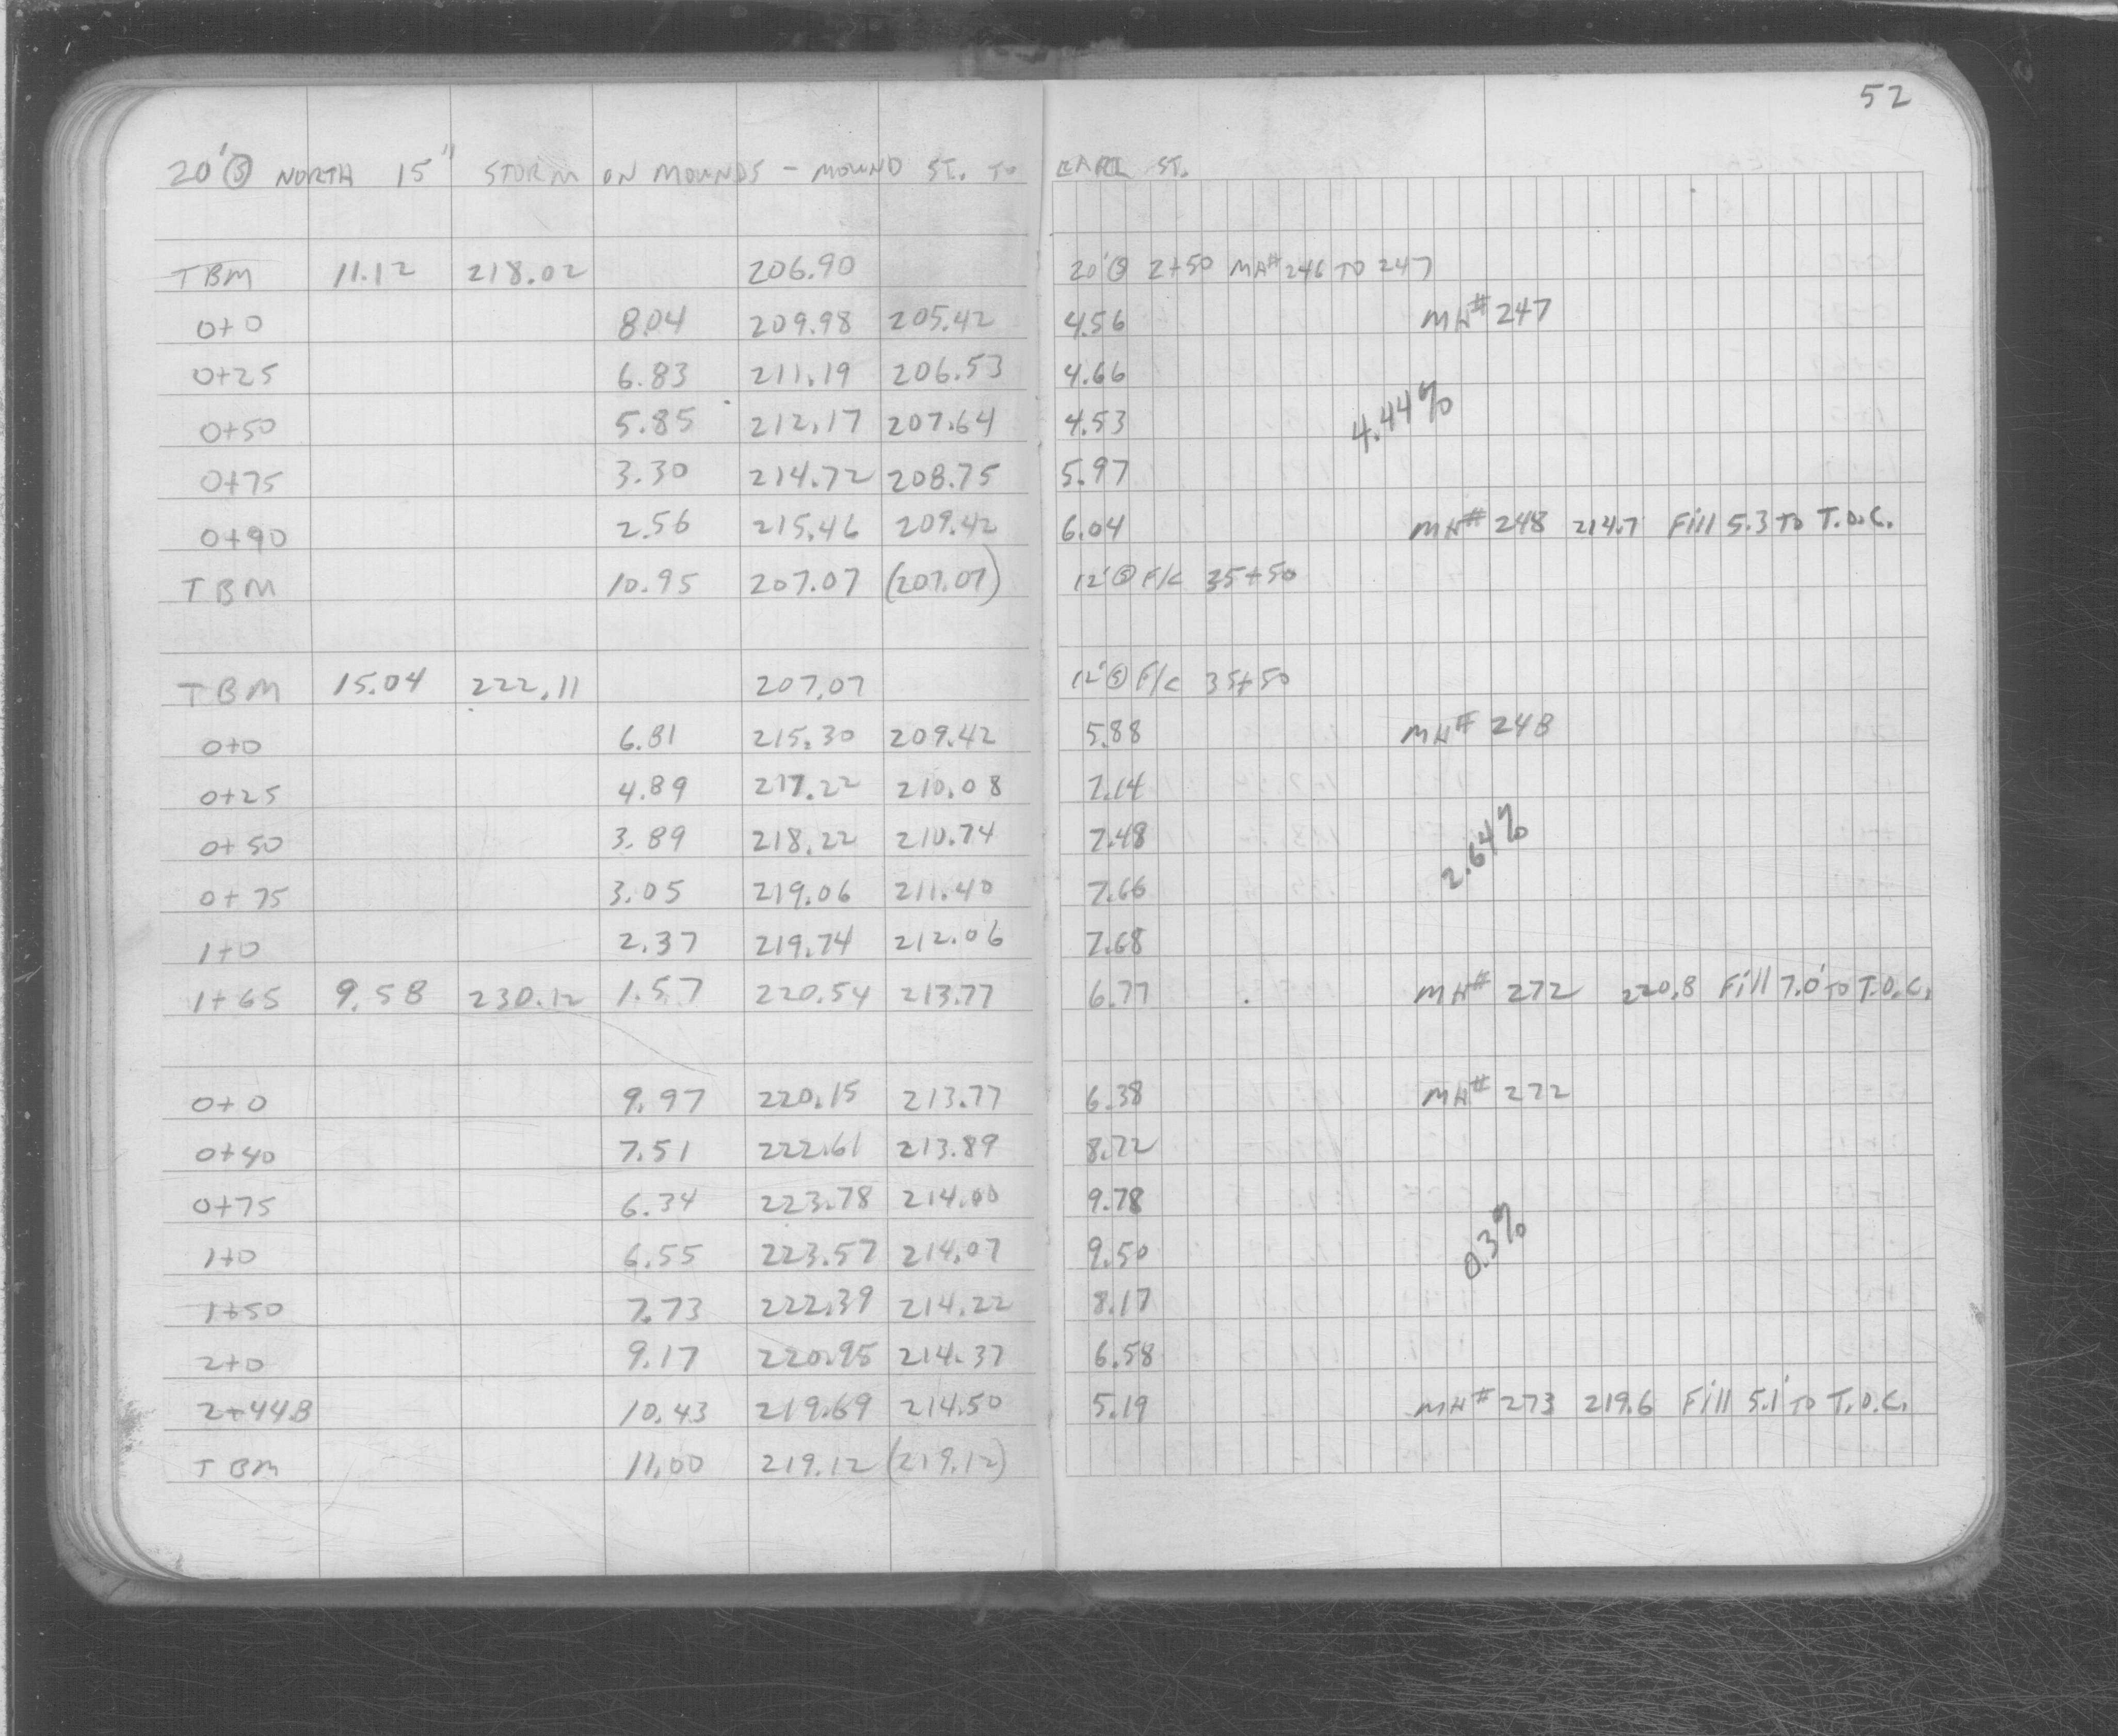 52
20' Ⓢ NORTH 15" STORM ON MOUNDS - MOUND ST. TO EARL ST.
TBM 11.12 218.02 206.90 20' Ⓢ 2+50 MH# 246 TO 247
0+0 8.04 209.98 205.42 4.56 MH# 247
0+25 6.83 211.19 206.53 4.66
0+50 5.85 212.17 207.64 4.53 4.44%
0+75 3.30 214.72 208.75 5.97
0+90 2.56 215.46 209.42 6.04 MH# 248 214.7 Fill 5.3 TO T.O.C.
TBM 10.95 207.07 (207.07) 12' Ⓢ F/C 35+50
TBM 15.04 222.11 207.07 12' Ⓢ F/C 35+50
0+0 6.81 215.30 209.42 5.88 MH# 248
0+25 4.89 217.22 210.08 7.14
0+50 3.89 218.22 210.74 7.48 2.64%
0+75 3.05 219.06 211.40 7.66
1+0 2.37 219.74 212.06 7.68
1+65 9.58 230.12 1.57 220.54 213.77 6.77 MH# 272 220.8 Fill 7.0' TO T.O.C.
0+0 9.97 220.15 213.77 6.38 MH# 272
0+40 7.51 222.61 213.89 8.72
0+75 6.34 223.78 214.00 9.78
1+0 6.55 223.57 214.07 9.50 0.3%
1+50 7.73 222.39 214.22 8.17
2+0 9.17 220.95 214.37 6.58
2+44.8 10.43 219.69 214.50 5.19 MH# 273 219.6 Fill 5.1' TO T.O.C.
TBM 11.00 219.12 (219.12)